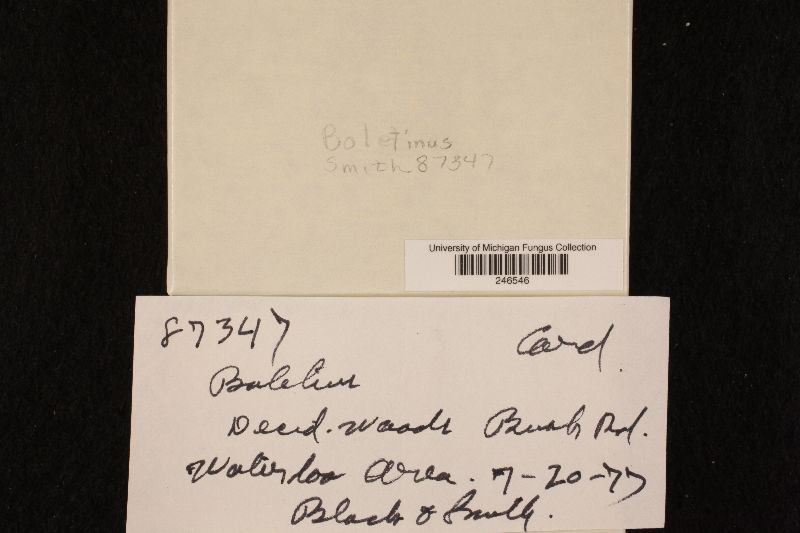 Boletinus
Smith 87347
University of Michigan Fungus Collection
246546
87347 Card.
Decid. Woods Bush Rd.
Waterloo Area. 7-20-77
Black & Smith.